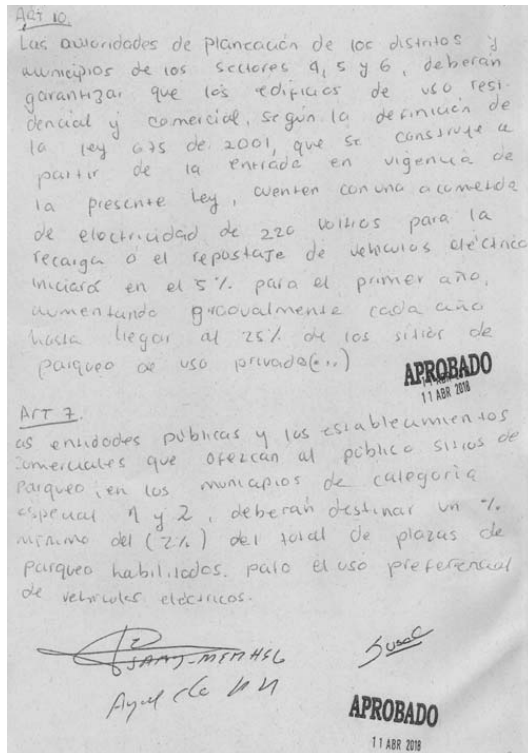 ART 10.
Las autoridades de planeación de los distritos y
municipios de los sectores 4, 5 y 6, deberán
garantizar que los edificios de uso resi-
dencial y comercial, según la definición de
la ley 675 de 2001, que se construya a
partir de la entrada en vigencia de
la presente Ley, cuenten con una acometida
de electricidad de 220 voltios para la
recarga o el repostaje de vehículos eléctrico
iniciará en el 5% para el primer año,
aumentando gradualmente cada año
hasta llegar al 25% de los sitios de
parqueo de uso privado(...)
APROBADO
11 ABR 2018
ART 7.
as entidades públicas y los establecimientos
comerciales que ofrezcan al público sitios de
parqueo, en los municipios de categoría
especial 1 y 2, deberán destinar un %
mínimo del (2%) del total de plazas de
parqueo habilitados. para el uso preferencial
de vehículos eléctricos.
APROBADO
11 ABR 2018